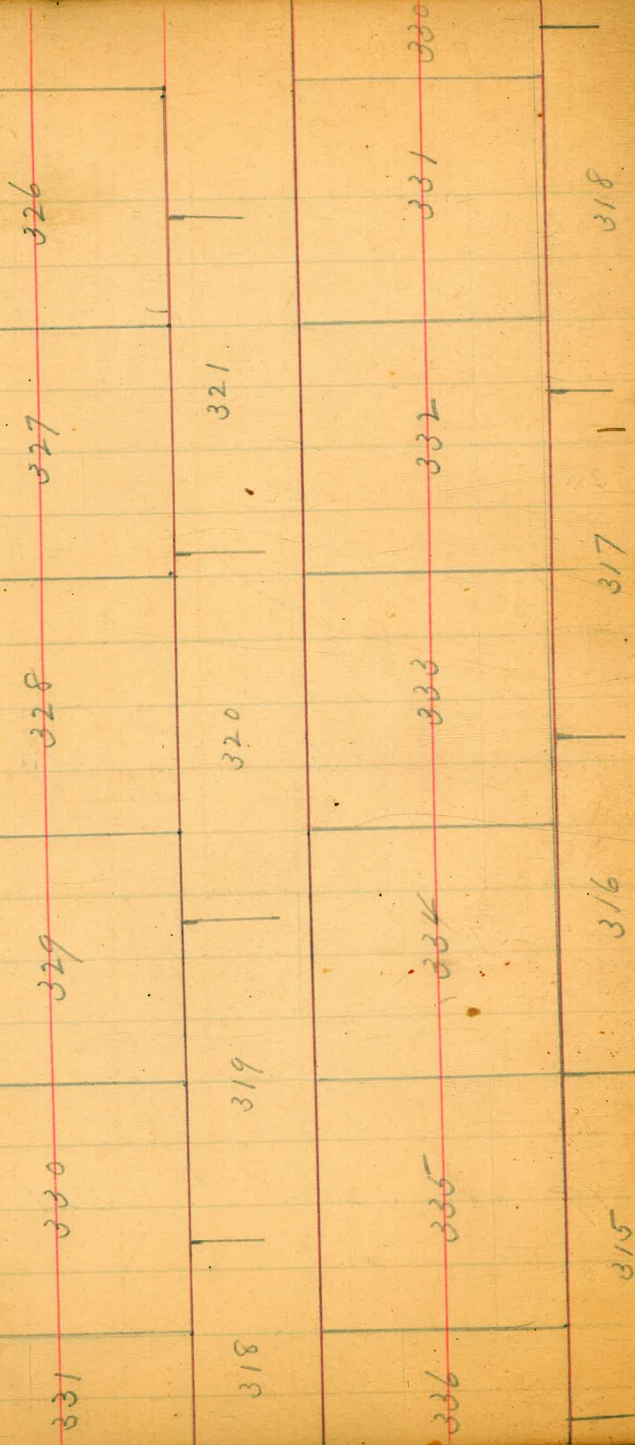 326 327 328 329 330 331
321 320 319 318
330 331 332 333 334 335 336
318 317 316 315